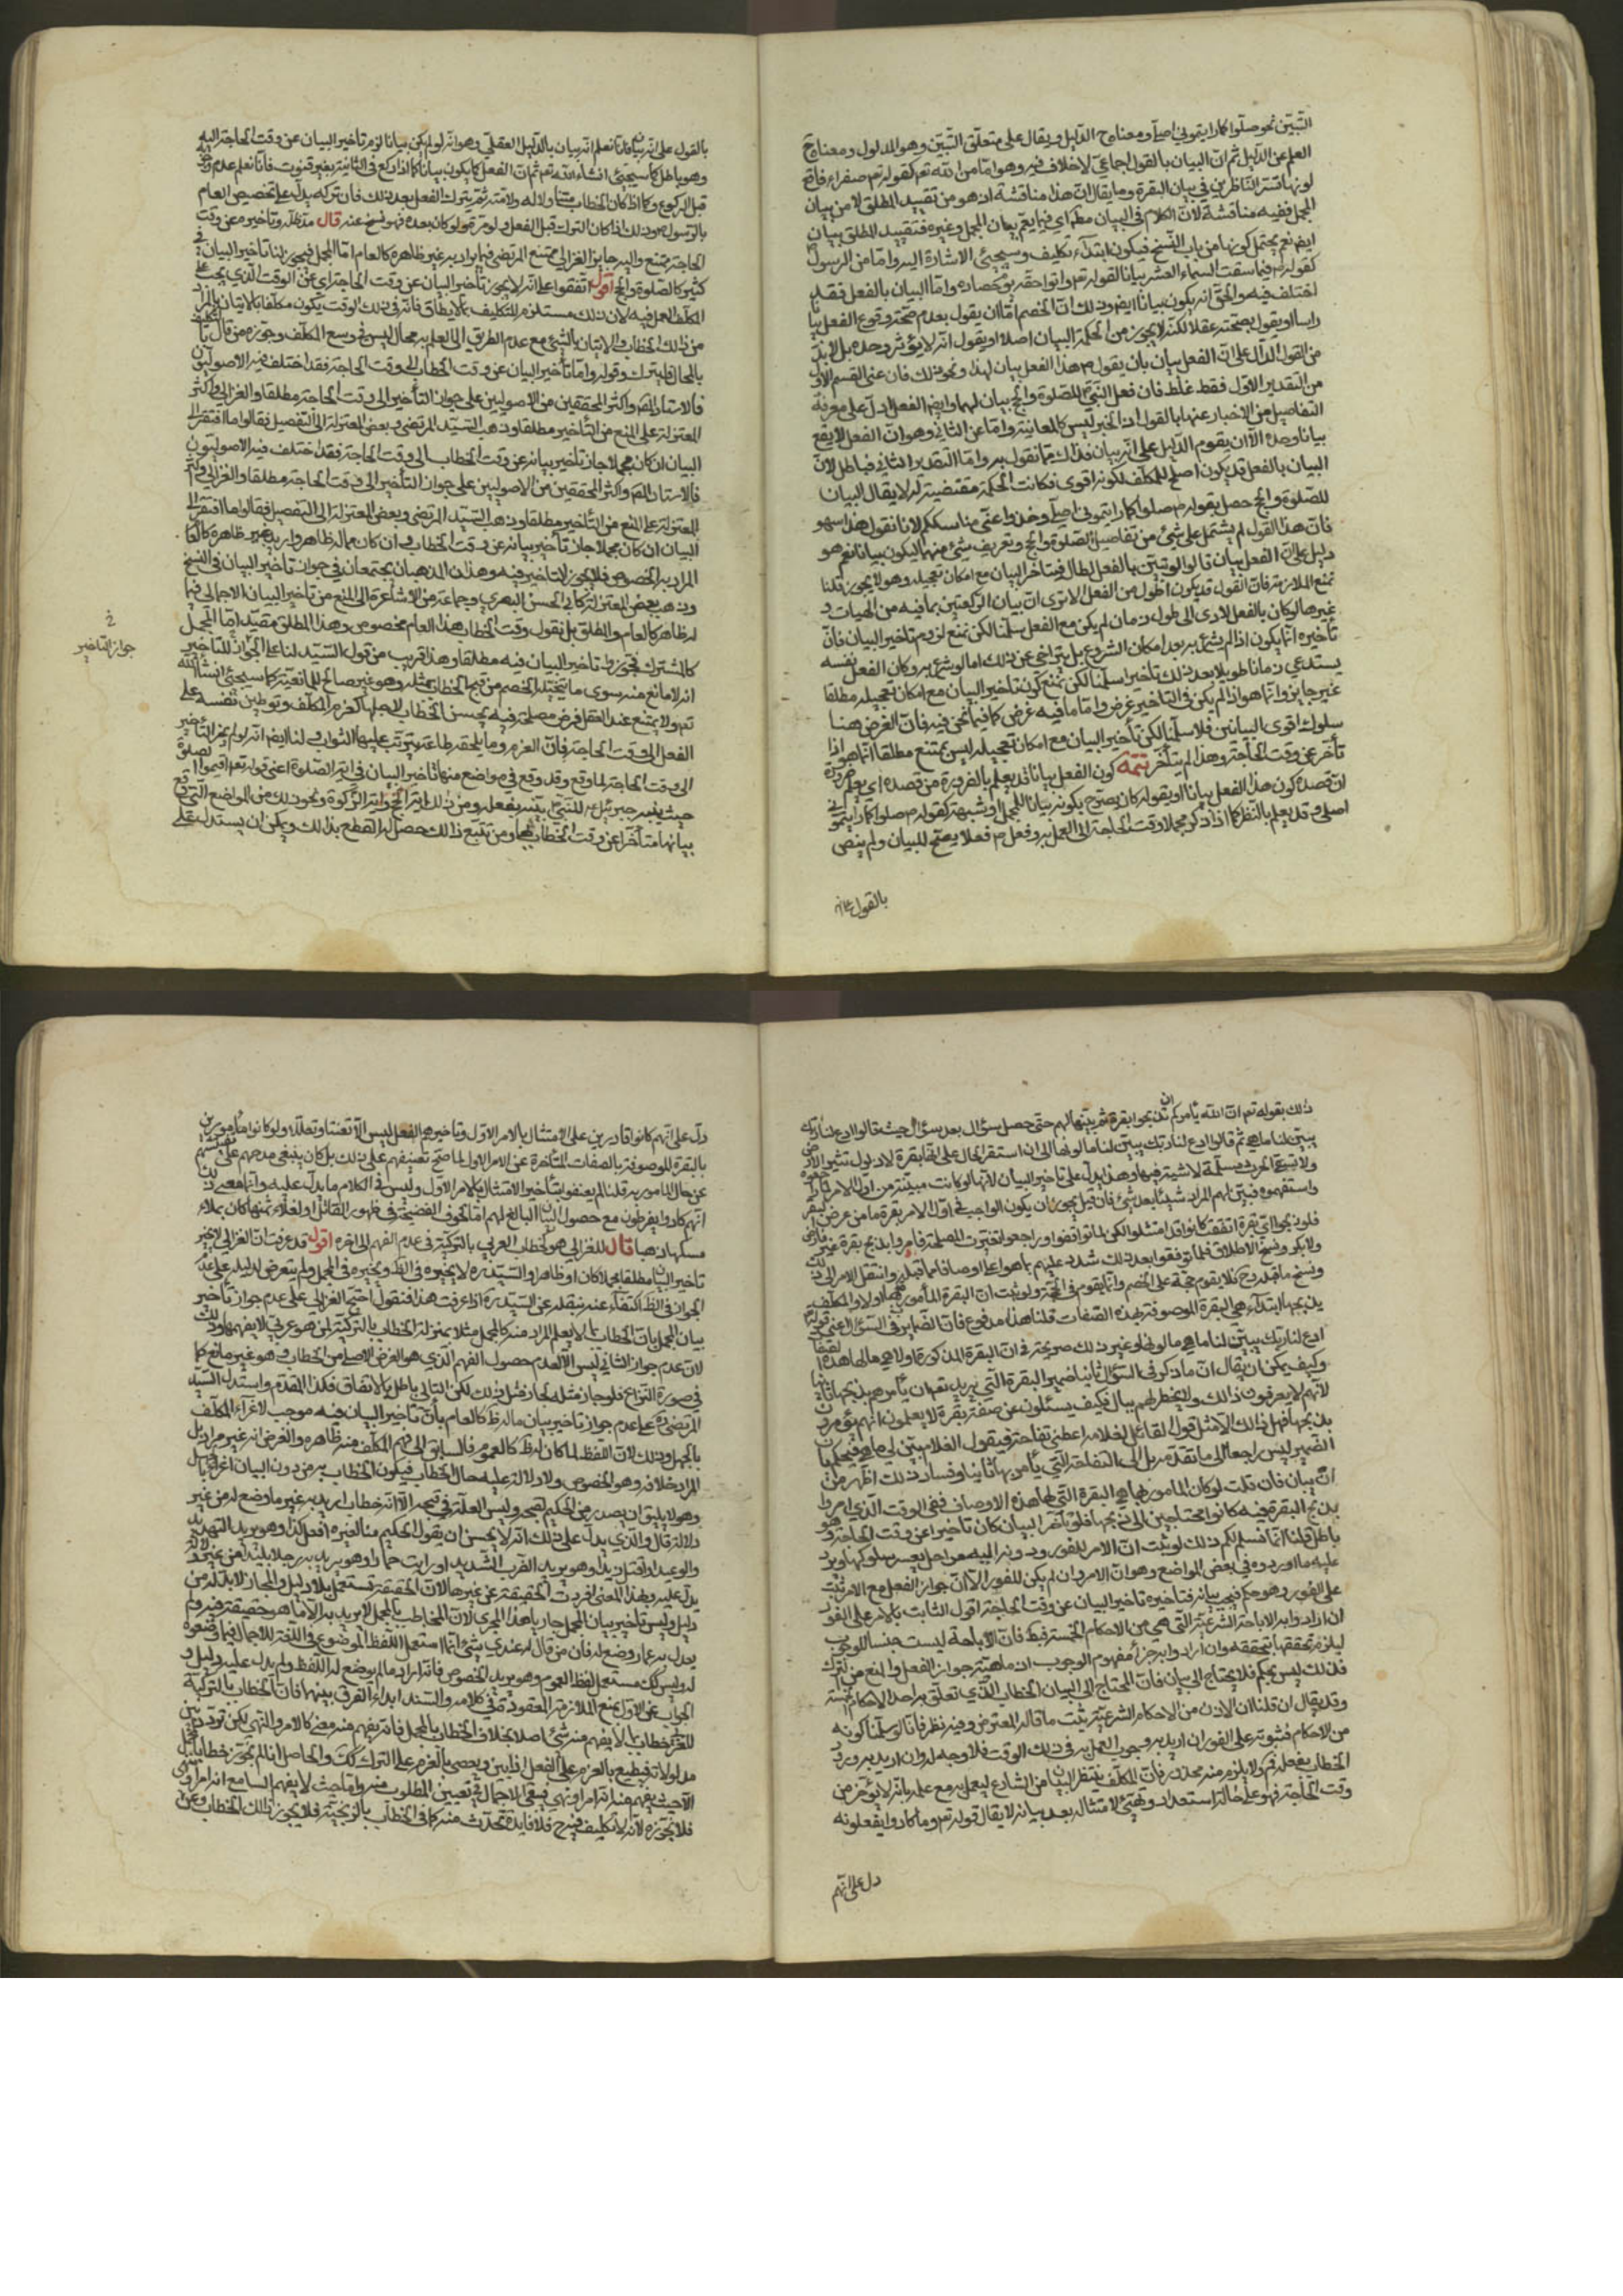 التبيّن نحو صلّوا كما رايتموني اصلّي ومعناه ح الدليل ويقال على متعلّق التبيّن وهو المدلول ومعناه ح
العلم عن الدليل ثم انّ البيان بالقول اجماعيّ لا خلاف فيه وهو امّا من الله تعم كقوله تعم صفراء فاقع
لونها تسرّ الناظرين في بيان البقرة وما يقال انّ هذا مناقشة اذ هو من تقييد المطلق لا من بيان
المجمل ففيه مناقشة لانّ الكلام في البيان مطلقا اي فيما يعمّ بيان المجمل وغيره فتقييد المطلق بيان
ايض نعم يحتمل كونها من باب النسخ فيكون ابتداء تكليف وسيجيئ الاشارة اليه وامّا من الرسول
كقوله ص فيما سقت السماء العشر بيانا لقوله تعم واتوا حقّه يوم حصاده وامّا البيان بالفعل فقد
اختلف فيه والحقّ انه يكون بيانا ايض وذلك انّ الخصم امّا ان يقول بعدم صحّة وقوع الفعل بيانا
راسا او يقول بصحّته عقلا لكنّه لا يجوز من الحكمة البيان اصلا او يقول انّه لا يؤثر وحده بل لا بدّ
من القول الدالّ على انّ الفعل بيان بأن يقول ص هذا الفعل بيان لهذا ونحو ذلك فان عنى القسم الاول
من التقدير الاوّل فقط غلط فان فعل النبيّ للصلوة والحجّ بيان لهما وايض الفعل ادلّ على معرفة
التفاصيل من الاخبار عنها بالقول اذ الخبر ليس كالمعاينة وامّا عن الثاني وهو انّ الفعل لا يقع
بيانا وحده الّا ان يقوم الدليل على انّه بيان فذاك ممّا نقول به وامّا التقدير الثاني فباطل لانّ
البيان بالفعل قد يكون اصلح للمكلّف لكونه اقوى فكانت الحكمة مقتضية له لا يقال البيان
للصلوة والحجّ حصل بقوله ص صلّوا كما رايتموني اصلّي وخذوا عنّي مناسككم لانا نقول هذا سهو
فانّ هذا القول لم يشتمل على شئ من تفاصيل الصلوة والحجّ وتعريف شئ منهما ليكون بيانا نعم هو
دليل على انّ الفعل بيان قالوا لو تبيّن بالفعل لطال فيتاخر البيان مع امكان تعجيله وهو لا يجوز قلنا
نمنع الملازمة فانّ القول قد يكون اطول من الفعل الا ترى انّ بيان الركعتين بما فيه من الهيئات و
غيرها لو كان بالفعل لادّى الى طول زمان لم يكن مع الفعل سلّمنا لكن نمنع لزوم تاخير البيان فانّ
تأخيره انّما يكون اذا لم يشتغل به بعد امكان الشروع بل يتراخى عن ذلك امّا لو شرع به وكان الفعل نفسه
يستدعي زمانا طويلا بعد ذلك تأخيرا سلّمنا لكن نمنع كون تاخير البيان مع امكان تعجيله مطلقا
غير جايز وانّما هو اذا لم يكن في التاخير غرض وامّا ما فيه غرض كما فيما نحن فيه فانّ الغرض هنا
سلوك اقوى البيانين فلا سلّمنا لكن تأخير البيان مع امكان تعجيله ليس يمتنع مطلقا انّما هو اذا
تأخر عن وقت الحاجة وهذا لم يتأخر تتمّة كون الفعل بيانا قد يعلم بالضرورة من قصده اي يعلم ضرورة
انّ قصده كون هذا الفعل بيانا او بقوله كان يصرّح بكونه بيانا للمجمل او شبهه كقوله ص صلّوا كما رايتموني
اصلّي وقد يعلم بالنظر كما اذا ذكر مجملا وقت الحاجة الى العمل به وفعل ص فعلا يصحّ للبيان ولم ينص
بالقول على انّه
بالقول على انّه بيانه فانّا نعلم انّه بيان بالدليل العقلي وهو انّه لو لم يكن بيانا لزم تاخير البيان عن وقت الحاجة اليه
وهو باطل كما سيجيئ انشاء الله تعم ثم انّ الفعل كما يكون بيانا كما اذا ركع في الثانية بغير قنوت فانّا نعلم عدم وجوبه
قبل الركوع وكما اذا كان الخطاب متناولا له ولامّته ثم يترك الفعل بعد ذلك فان تركه يدلّ على تخصيص العام
بالرسول ص وذلك اذا كان الترك قبل الفعل ولو مرّة ولو كان بعده فهو نسخ عنه قال مدّ ظلّه وتاخيره عن وقت
الحاجة ممتنع واليه جايز الغزالي ممتنع المرتضى فيما يراد به غير ظاهره كالعام امّا المجمل فيجوز لنا تأخير البيان في
كثير كالصلوة والحجّ اقول اتفقوا على انّه لا يجوز تأخير البيان عن وقت الحاجة اي عن الوقت الذي يجب على
المكلّف العمل فيه لان ذلك مستلزم للتكليف بما لا يطاق فانّه في ذلك الوقت يكون مكلّفا بالاتيان بالمراد
من ذلك الخطاب والاتيان بالشئ مع عدم الطريق الى العلم به محال ليس في وسع المكلّف وجوّزه من قال بالتكليف
بالمحال فليترك وقوله وامّا تأخير البيان عن وقت الخطاب الى وقت الحاجة فقد اختلف فيه الاصوليّون
فالاستاد المص واكثر المحققين من الاصوليين على جواز التأخير الى وقت الحاجة مطلقا والغزالي واكثر
المعتزلة على المنع من التأخير مطلقا وذهب السيّد المرتضى وبعض المعتزلة الى التفصيل فقالوا ما افتقر الى
البيان ان كان مجملا جاز تأخير بيانه عن وقت الخطاب الى وقت الحاجة فقد اختلف فيه الاصوليّون
فالاستاد المص واكثر المحققين من الاصوليين على جواز التأخير الى وقت الحاجة مطلقا والغزالي واكثر
المعتزلة على المنع من التأخير مطلقا وذهب السيّد المرتضى وبعض المعتزلة الى التفصيل فقالوا ما افتقر الى
البيان ان كان مجملا جاز تأخير بيانه عن وقت الخطاب وان كان ممّا له ظاهر واريد به غير ظاهره كالعام
المراد به الخصوص فلا يجوز التاخير فيه وهذان المذهبان يجتمعان في جواز تأخير البيان في النسخ
وذهب بعض المعتزلة كابي الحسن البصري وجماعة من الاشاعرة الى المنع من تأخير البيان الاجمالي فيما
له ظاهر كالعام والمطلق بل نقول وقت الخطاب هذا العام مخصوص وهذا المطلق مقيّد امّا المجمل
كالمشترك فيجوز تاخير البيان فيه مطلقا وهذا قريب من قول السيّد لنا على الجواز للتأخير
انه لا مانع منه سوى ما يتخيّله الخصم من قبح الخطاب بمثله وهو غير صالح للمانعيّة كما سيجيئ انشاء الله
تعم ولا يمتنع عند العقل فرض مصلحة فيه يحسن الخطاب لاجلها كعزم المكلّف وتوطين نفسه على
الفعل الى وقت الحاجة فانّ العزم وما يلحقه طاعة يترتب عليها الثواب ولنا ايض انّه لو لم يجز التأخير
الى وقت الحاجة لما وقع وقد وقع في مواضع منها تأخير البيان في اية الصلوة اعني قوله تعم اقيموا الصلوة
حيث بيّنه جبرئيل ع للنبيّ ص بيّنه بفعله ومن ذلك اية الحجّ واية الزكوة ونحو ذلك من المواضع التي وقع
بيانها متأخرا عن وقت الخطاب بها ومن تتبّع ذلك حصل له القطع بذلك ويمكن ان يستدل على
في
جواز التاخير
ذلك بقوله تعم انّ الله يأمركم ان تذبحوا بقرة ثم بيّنها لهم حتى حصل سؤال بعد سؤال حيث قالوا ادع لنا ربك
يبيّن لنا ما هي ثم قالوا ادع لنا ربّك يبيّن لنا ما لونها الى ان استقر الحال على انها بقرة لا ذلول تثير الارض
ولا تسقي الحرث مسلّمة لا شية فيها وهذا يدلّ على تاخير البيان لانّها لو كانت مبيّنة من اوّل الامر لما راجعوه
واستفهموه فبيّن لهم المراد شيئا بعد شئ فان قيل يجوز ان يكون الواجب في اوّل الامر بقرة ما من عرض البقر
فلو ذبحوا ايّ بقرة اتفقت كانوا قد امتثلوا لكن لما توانقوا وراجعوا تغيّرت المصلحة فامروا بذبح بقرة غير فارض
ولا بكر ونسخ الاطلاق فلمّا توقفوا بعد ذلك شدد عليهم بما هو اعلى اوصافا ممّا قبله وانتقل الامر الى ذلك
ونسخ ما قبله وح فلا يقوم حجّة على الخصم وانّما يقوم في الحجّة لو ثبت انّ البقرة المأمور بذبحها اولا والمكلّف
بذبحها ابتداء هي البقرة الموصوفة بهذه الصفات قلنا هذا مدفوع فانّ الضماير في السؤال اعني قوله
ادع لنا ربّك يبيّن لنا ما هي وما لونها وغير ذلك صريحة في انّ البقرة المذكورة اولا هي ما لها هذه الصفات
وكيف يمكن ان يقال انّ ما ذكر في السؤال ثانيا ضمير البقرة التي يريد تعم ان يأمرهم بذبحها ثانيا
لانّهم لا يعرفون ذلك ولا يخطر لهم ببال فكيف يسئلون عن صفة بقرة لا يعلمون انهم يؤمرون
بذبحها فهل ذلك الّا مثل قول القائل لغلامه اعطني تفاحة فيقول الغلام بيّن لي ما هي فيحكم بانّ
الضمير ليس راجعا الى ما تقدّمه بل الى التفاحة التي يأمره بها ثانيا وفساد ذلك اظهر من
ان يبان فان قلت لو كان المأمور بها هي البقرة التي لها هذه الاوصاف ففي الوقت الذي امروا
بذبح البقرة فيه كانوا محتاجين الى ذبحها فلو تأخر البيان كان تأخيرا عن وقت الحاجة وهو
باطل قلنا انّما نسلّم لكم ذلك لو ثبت انّ الامر للفور ودونه اليه مراحل يعسر سلوكها ويرد
عليه ما اوردوه في بعض المواضع وهو انّ الامر وان لم يكن للفور الّا انّ جواز الفعل مع الامر ثبت
على الفور وهو حكم فيجب بيانه فتأخيره تأخير البيان عن وقت الحاجة اقول الثابت بالامر على الفور
ان اراد به الاباحة الشرعيّة التي هي من الاحكام الخمسة فبط فانّ الاباحة ليست جنسا للوجوب
ليلزم تحققها بتحققه وان اراد به جزء مفهوم الوجوب اذ ماهيّته جواز الفعل والمنع من الترك
فذلك ليس بحكم فلا يحتاج الى بيان فانّ المحتاج الى البيان الخطاب الذي تعلّق به احد الاحكام الخمسة
وقد يقال ان قلنا ان الاذن من الاحكام الشرعيّة يثبت ما قاله المعترض وفيه نظر فانّا لو سلّمنا كونه
من الاحكام فثبوته على الفور ان اريد به وجوب العمل به في ذلك الوقت فلا وجه له وان اريد به ورود
الخطاب بفعله فمّ ولا يلزم منه محذور فانّ المكلّف ينتظر البيان من الشارع ليعمل به مع علمه بانّه لا يؤخر من
وقت الحاجة فهو على حالة استعداد وتهيّئ لامتثاله بعد بيانه لا يقال قوله تعم وما كادوا يفعلونه
دلّ على انّهم
دلّ على انّهم كانوا قادرين على الامتثال بالامر الاوّل وتاخيرهم الفعل ليس الّا تعنّتا وتعلّلا ولو كانوا مأمورين
بالبقرة الموصوفة بالصفات المتأخرة عن الامر الاوّل لما صحّ تعنيفهم على ذلك بل كان ينبغي مدحهم على تفتيشهم
عن حال المأمور به قلنا لم يعنفوا بتأخير الامتثال بالامر الاوّل وليس في الكلام ما يدلّ عليه وانّما معنى ذلك
انّهم كادوا يفرطون مع حصول البيان البالغ لهم امّا لخوف الفضيحة في ظهور القاتل او لغلاء ثمنها كان بملاء
مسكها ذهبا قال للغزالي هو كخطاب العربي بالتركيّة في عدم الفهم الى اخره اقول قد عرفت انّ الغزالي لا يجيز
تأخير البيان مطلقا مجملا كان او ظاهرا والسيّد ره لا يجيزه في الظ ويجيزه في المجمل ولم يتعرض لدليله على عدم
الجواز في الظ اكتفاء عنه بنقله عن السيّد ره اذا عرفت هذا فنقول احتج الغزالي على عدم جواز تأخير
بيان المجمل بانّ الخطاب بما لا يعلم المراد منه كالمجمل مثلا بمنزلة الخطاب بالتركيّة لمن هو عربي لا يفهمها وذلك
لانّ عدم جواز الثاني ليس الّا لعدم حصول الفهم الذي هو الغرض الاصلي من الخطاب وهو غير مانع كما
في صورة النزاع فلو جاز مثله لجاز مثل ذلك لكن التالي باطل بالاتفاق فكذا المقدّم واستدل السيّد
المرتضى ره على عدم جواز تاخير بيان ماله ظ كالعام بانّ تأخير البيان فيه موجب لاغراء المكلّف
بالجهل وذلك لانّ اللفظ لما كان له ظ كالعموم فالسابق الى فهم المكلّف منه ظاهره والغرض انه غير مراد بل
المراد خلافه وهو الخصوص ولا دلالة عليه حال الخطاب فيكون الخطاب به من دون البيان اغراء بالجهل
وهو لا يليق ان يصدر من الحكيم لقبحه وليس العلّة في قبحه الّا انّه خطاب اريد به غير ما وضع له من غير
دلالة قال والذي يدلّ على ذلك انّه لا يحسن ان يقول الحكيم منّا لغيره افعل كذا وهو يريد التهديد
والوعيد او اقتل زيدا وهو يريد الضرب الشديد او رايت حمارا وهو يريد به رجلا بليدا من غير دلالة
يدل عليه وبهذا المعنى فرقت الحقيقة عن غيرها لانّ الحقيقة تستعمل بلا دليل والمجاز لا بدّ له من
دليل وليس تأخير بيان المجمل جاريا هذا المجرى لانّ المخاطب بالمجمل لا يريد به الّا ما هو حقيقة فيه ولم
يعدل به عمّا وضع له فان من قال له عندي شئ انّما استعمل اللفظ الموضوع في اللغة للاجمال فيما وضعوه
له وليس كك مستعمل لفظ العموم وهو يريد الخصوص فانّه اراد ما لم يوضع له اللفظ ولم يدل عليه دليل و
الجواب عن الاوّل بمنع الملازمة المعقودة في كلامه والسند ابداء الفرق بينهما فانّ الخطاب بالتركيّة
للعربي خطاب بما لا يفهم منه شئ اصلا بخلاف الخطاب بالمجمل فانّه يفهم منه معنى كالامر والنهي لكن تردّد بين
مدلولاته فيطيع بالعزم على الفعل اذا بيّن ويعصي بالعزم على الترك كك والحاصل انا لم نجوّز خطابا لمجمل
الّا حيث يفهم منه انّه امر او نهي فيبقى الاجمال في تعيين المطلوب منه وامّا حيث لا يفهم السامع انه امر او نهي
فلا نجوّزه لانّه لا تكليف فيه ح فلا فايدة تحدث منه كما في الخطاب بالزنجيّة فلا يجوز ذلك الخطاب وعن